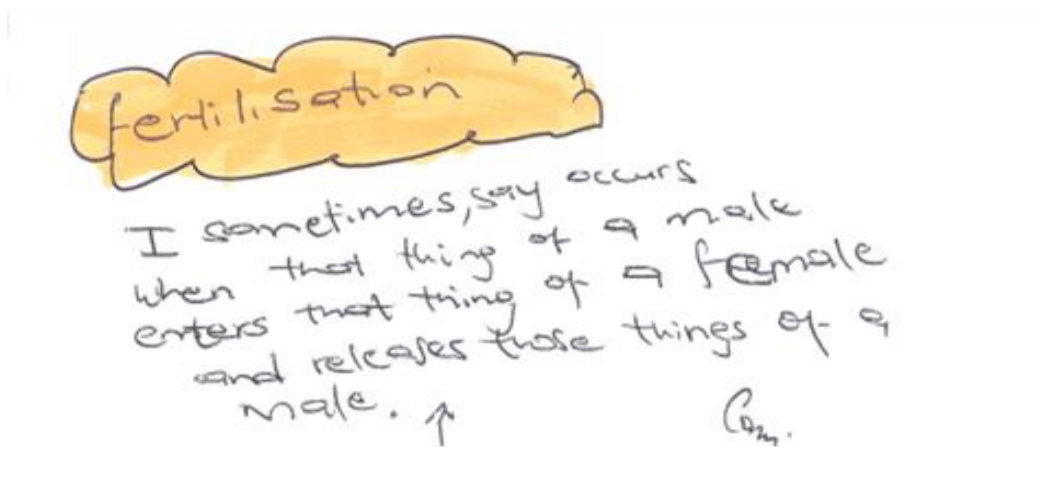 fertilisation
I sometimes, say occurs
when that thing of a male
enters that thing of a female
and releases those things of a
male. ↑